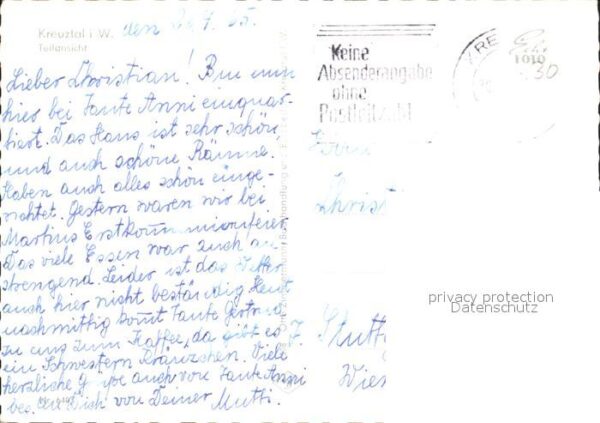 Kreuztal i. W.
Teilansicht
den 26.7.65.
Lieber Christian! Bin nun
hier bei Tante Anni einquar-
tiert. Das Haus ist sehr schön
und auch schöne Räume.
Haben auch alles schön einge-
richtet. Gestern waren wir bei
Martins Erstkommunionfeier.
Das viele Essen war auch an-
strengend. Leider ist das Wetter
auch hier nicht beständig. Heut
nachmittig komt Tante Gertrud
zu uns zum Kaffee, da gibt es
ein Schwestern Kränzchen. Viele
herzliche auch von Tante Anni
bes. an Dich von Deiner Mutti.
Keine
Absenderangabe
ohne
Postleitzahl
Christ
7 Stutt
Wies
privacy protection
Datenschutz